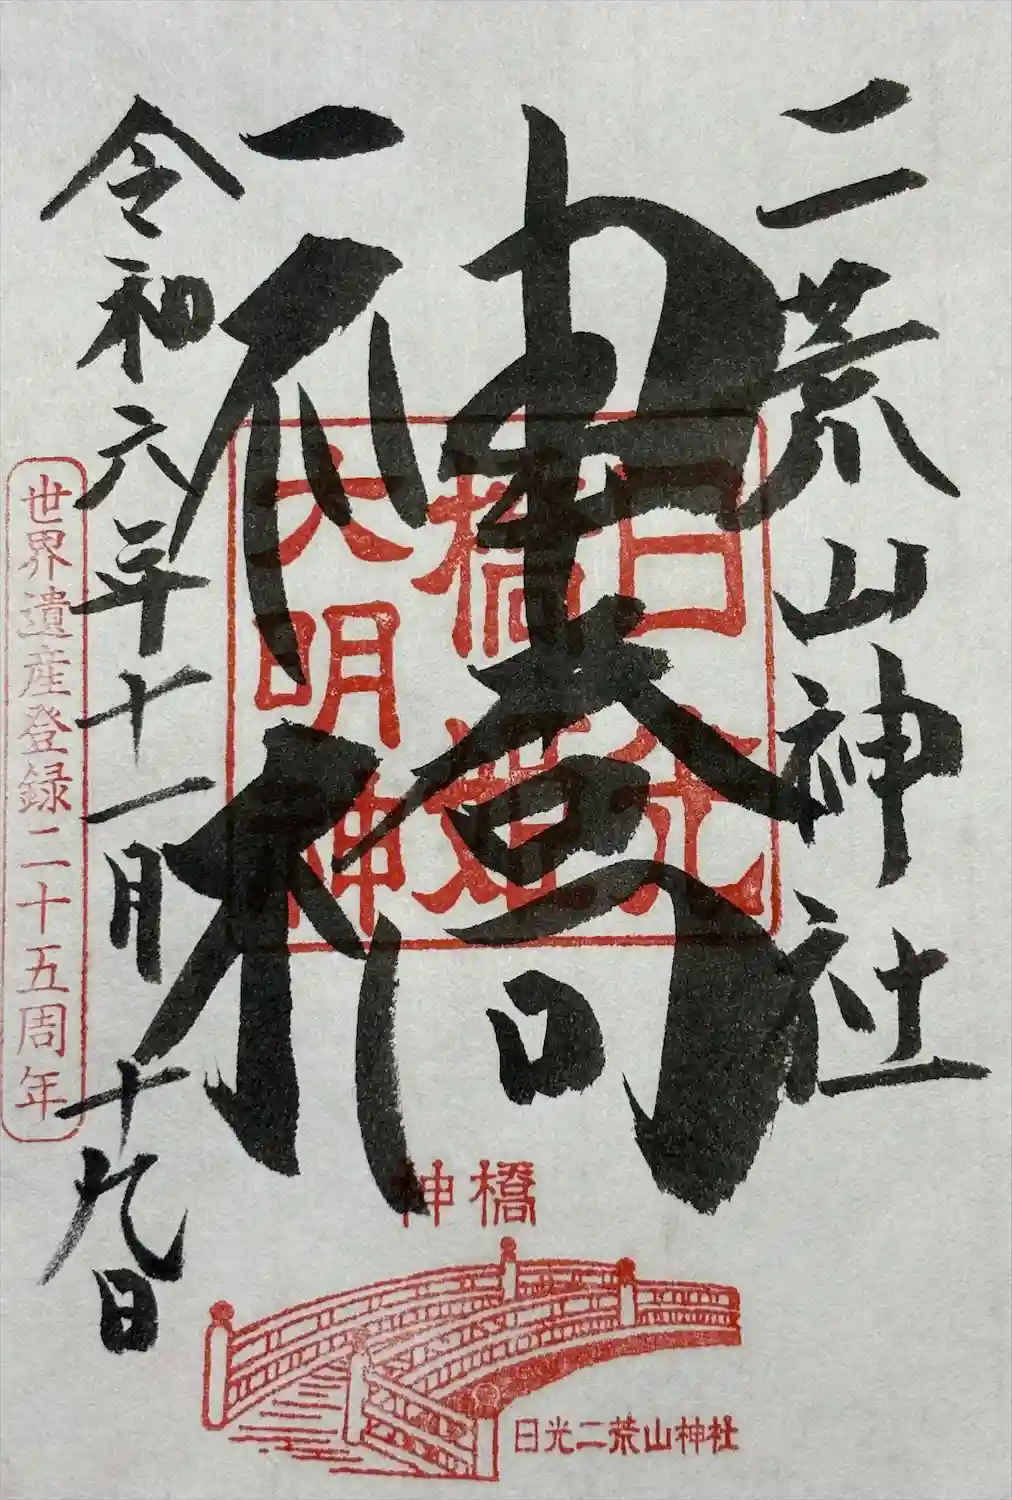 二荒山神社
神橋
令和六年十一月十九日
日光
橋姫
大明神
世界遺産登録二十五周年
神橋
日光二荒山神社